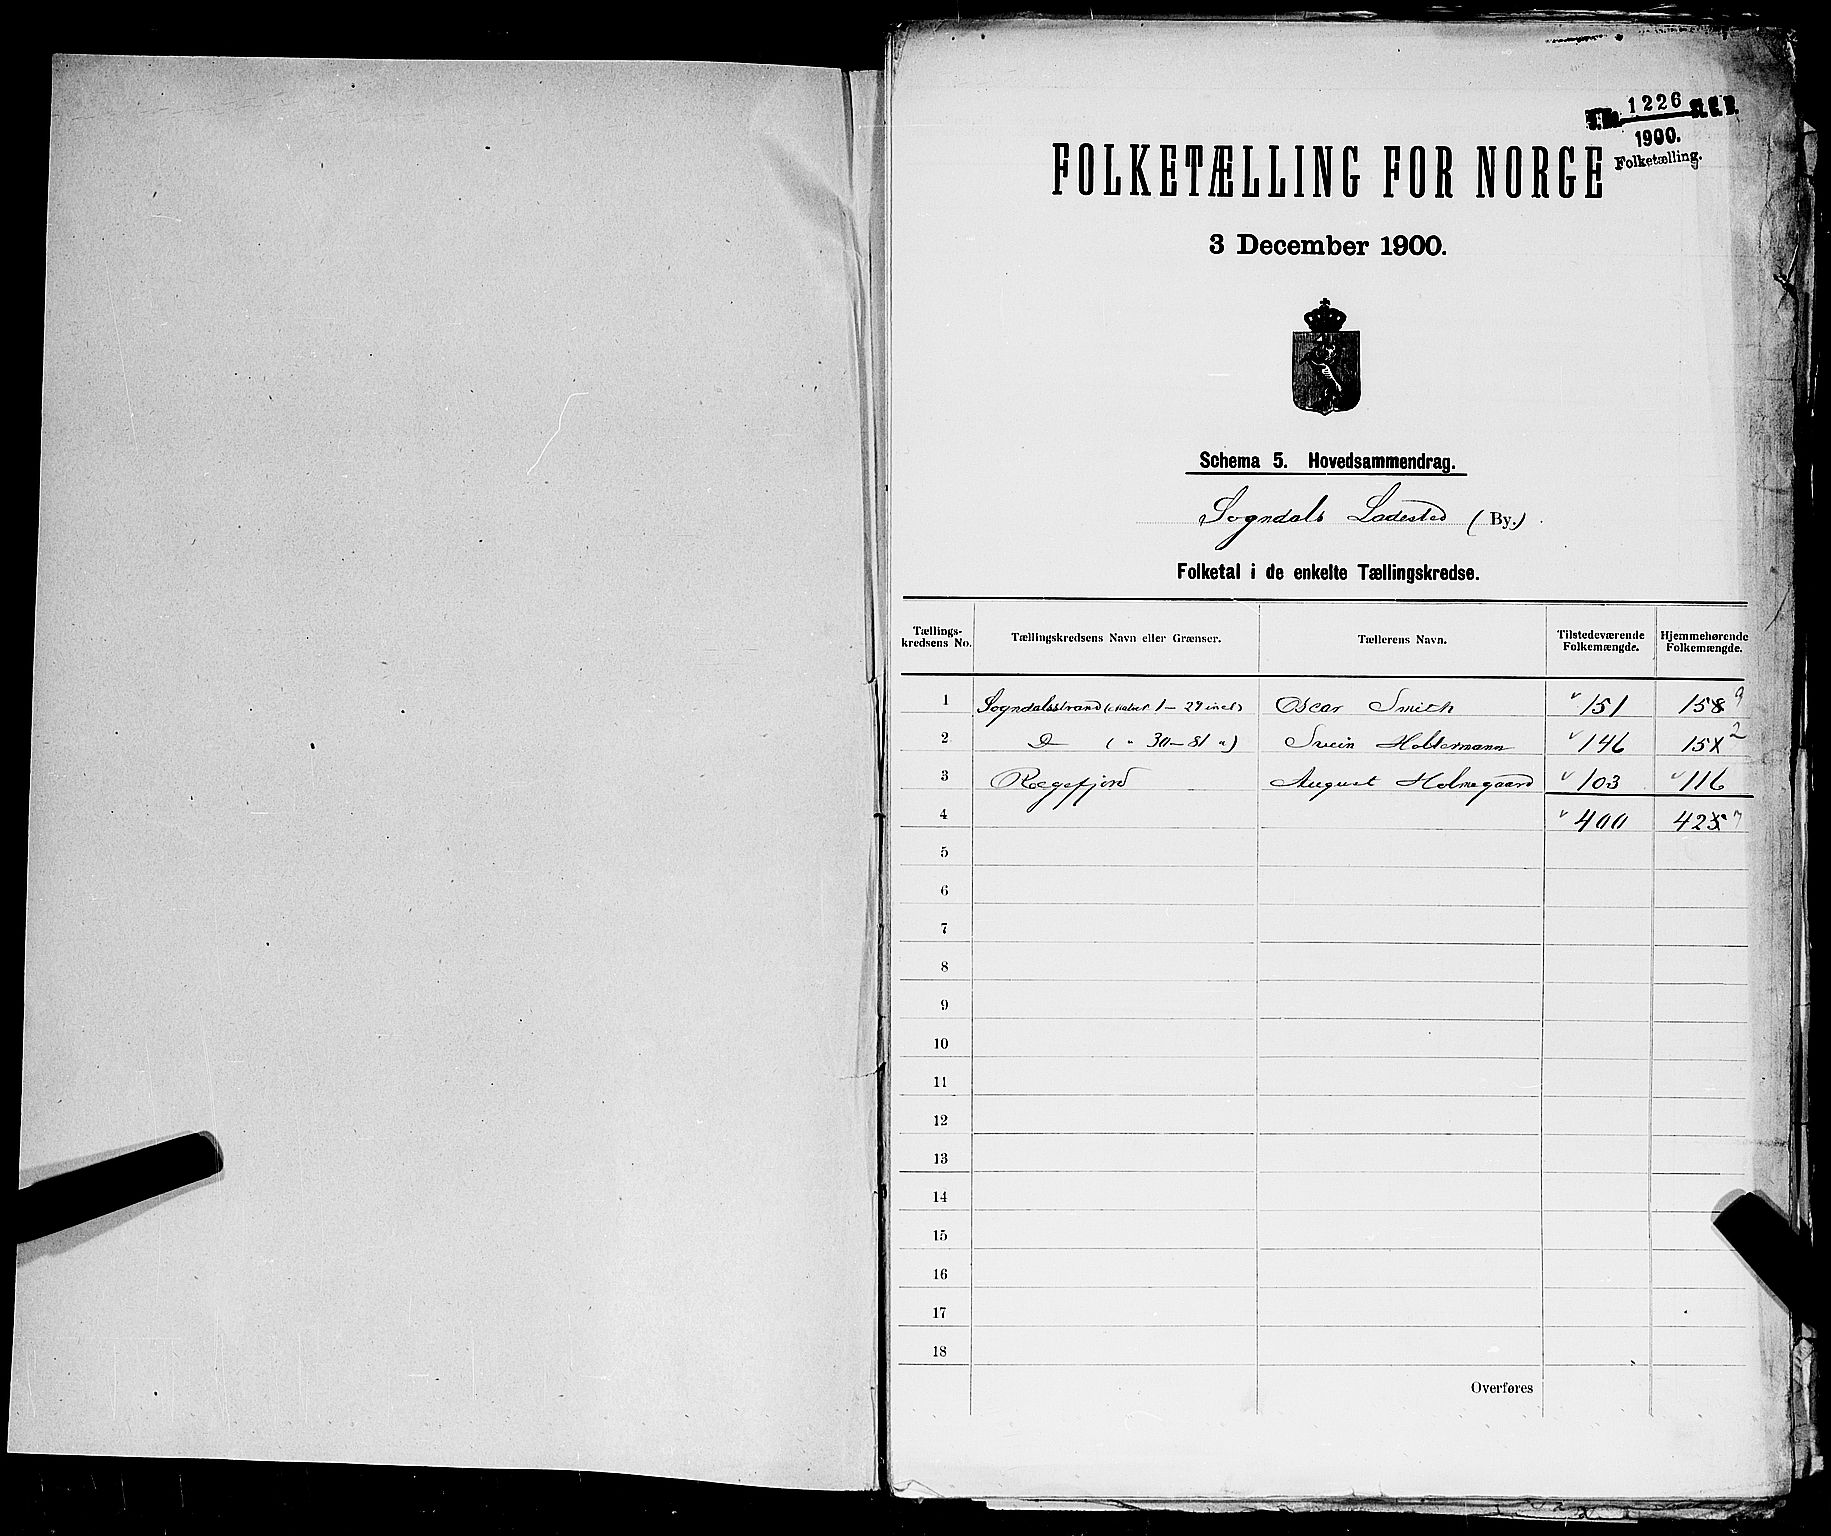 J.No. 1226 S.C.B.
1900.
Folketælling.
FOLKETÆLLING FOR NORGE
3 December 1900.
Schema 5. Hovedsammendrag.
Sogndals Ladested (By.)
Folketal i de enkelte Tællingskredse.
Tællings-kredsens No. Tællingskredsens Navn eller Grænser. Tællerens Navn. Tilstedeværende Folkemængde. Hjemmehørende Folkemængde.
1 Sogndalsstrand ( 1 - 29 incl) Oscar Smith 151 158 9
2 D ( " 30 - 81 " ) Svein Holtermann 146 151 2
3 Rægefjord August Holmegaard 103 116
4 400 425 7
5
6
7
8
9
10
11
12
13
14
15
16
17
18
Overføres